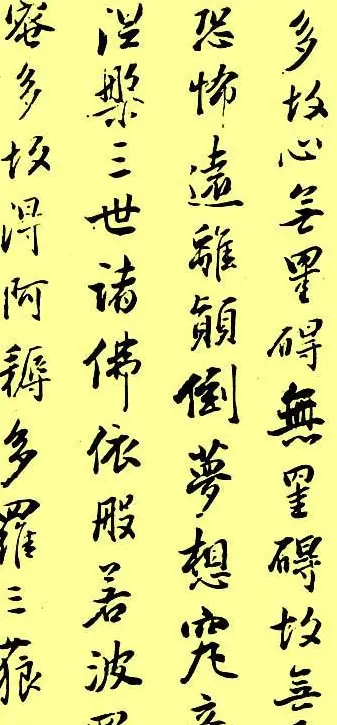 多故心無罣碍無罣碍故無
恐怖遠離顛倒夢想究竟
涅槃三世諸佛依般若波羅
蜜多故得阿耨多羅三藐